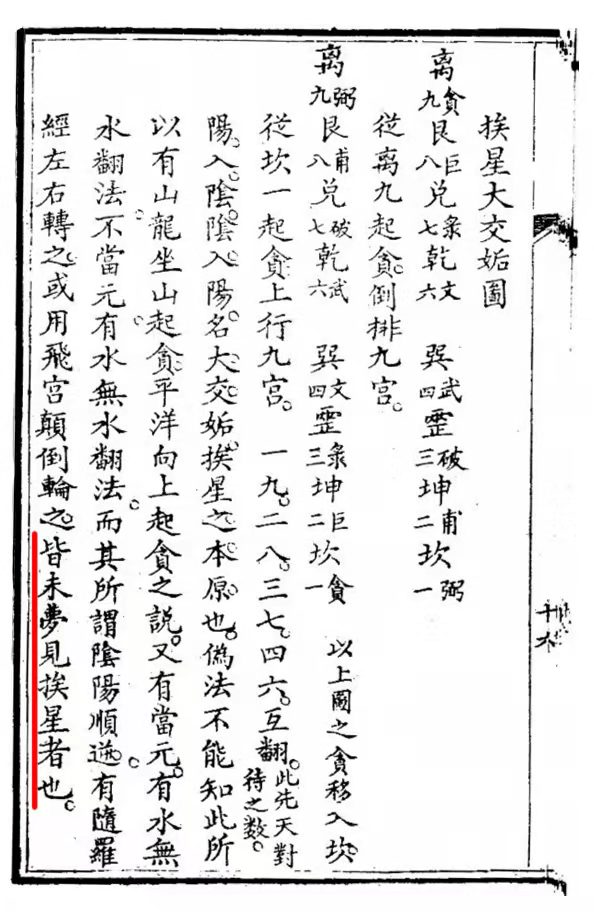 挨星大交姤圖
離九貪艮八巨兌七彔乾六文 巽四武震三破坤二甫坎一弼
從離九起貪。倒排九宮。
離九弼艮八甫兌七破乾六武 巽四文震三彔坤二巨坎一貪 以上圖之貪移入坎。
從坎一起貪上行九宮。一九。二八。三七。四六。互翻。此先天對待之数。
陽。入陰。陰入。陽名大交姤。挨星之本原也。偽法不能知此所
以有山龍坐山起貪。平洋向上起貪之說。又有當元。有水無
水翻法。不當元。有水無水翻法。而其所謂陰陽順逆。有隨羅
經左右轉之。或用飛宮顛倒輪之。皆未夢見挨星者也。